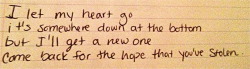 I let my heart go
it's somewhere down at the bottom
but I'll get a new one
Come back for the hope that you've stolen.